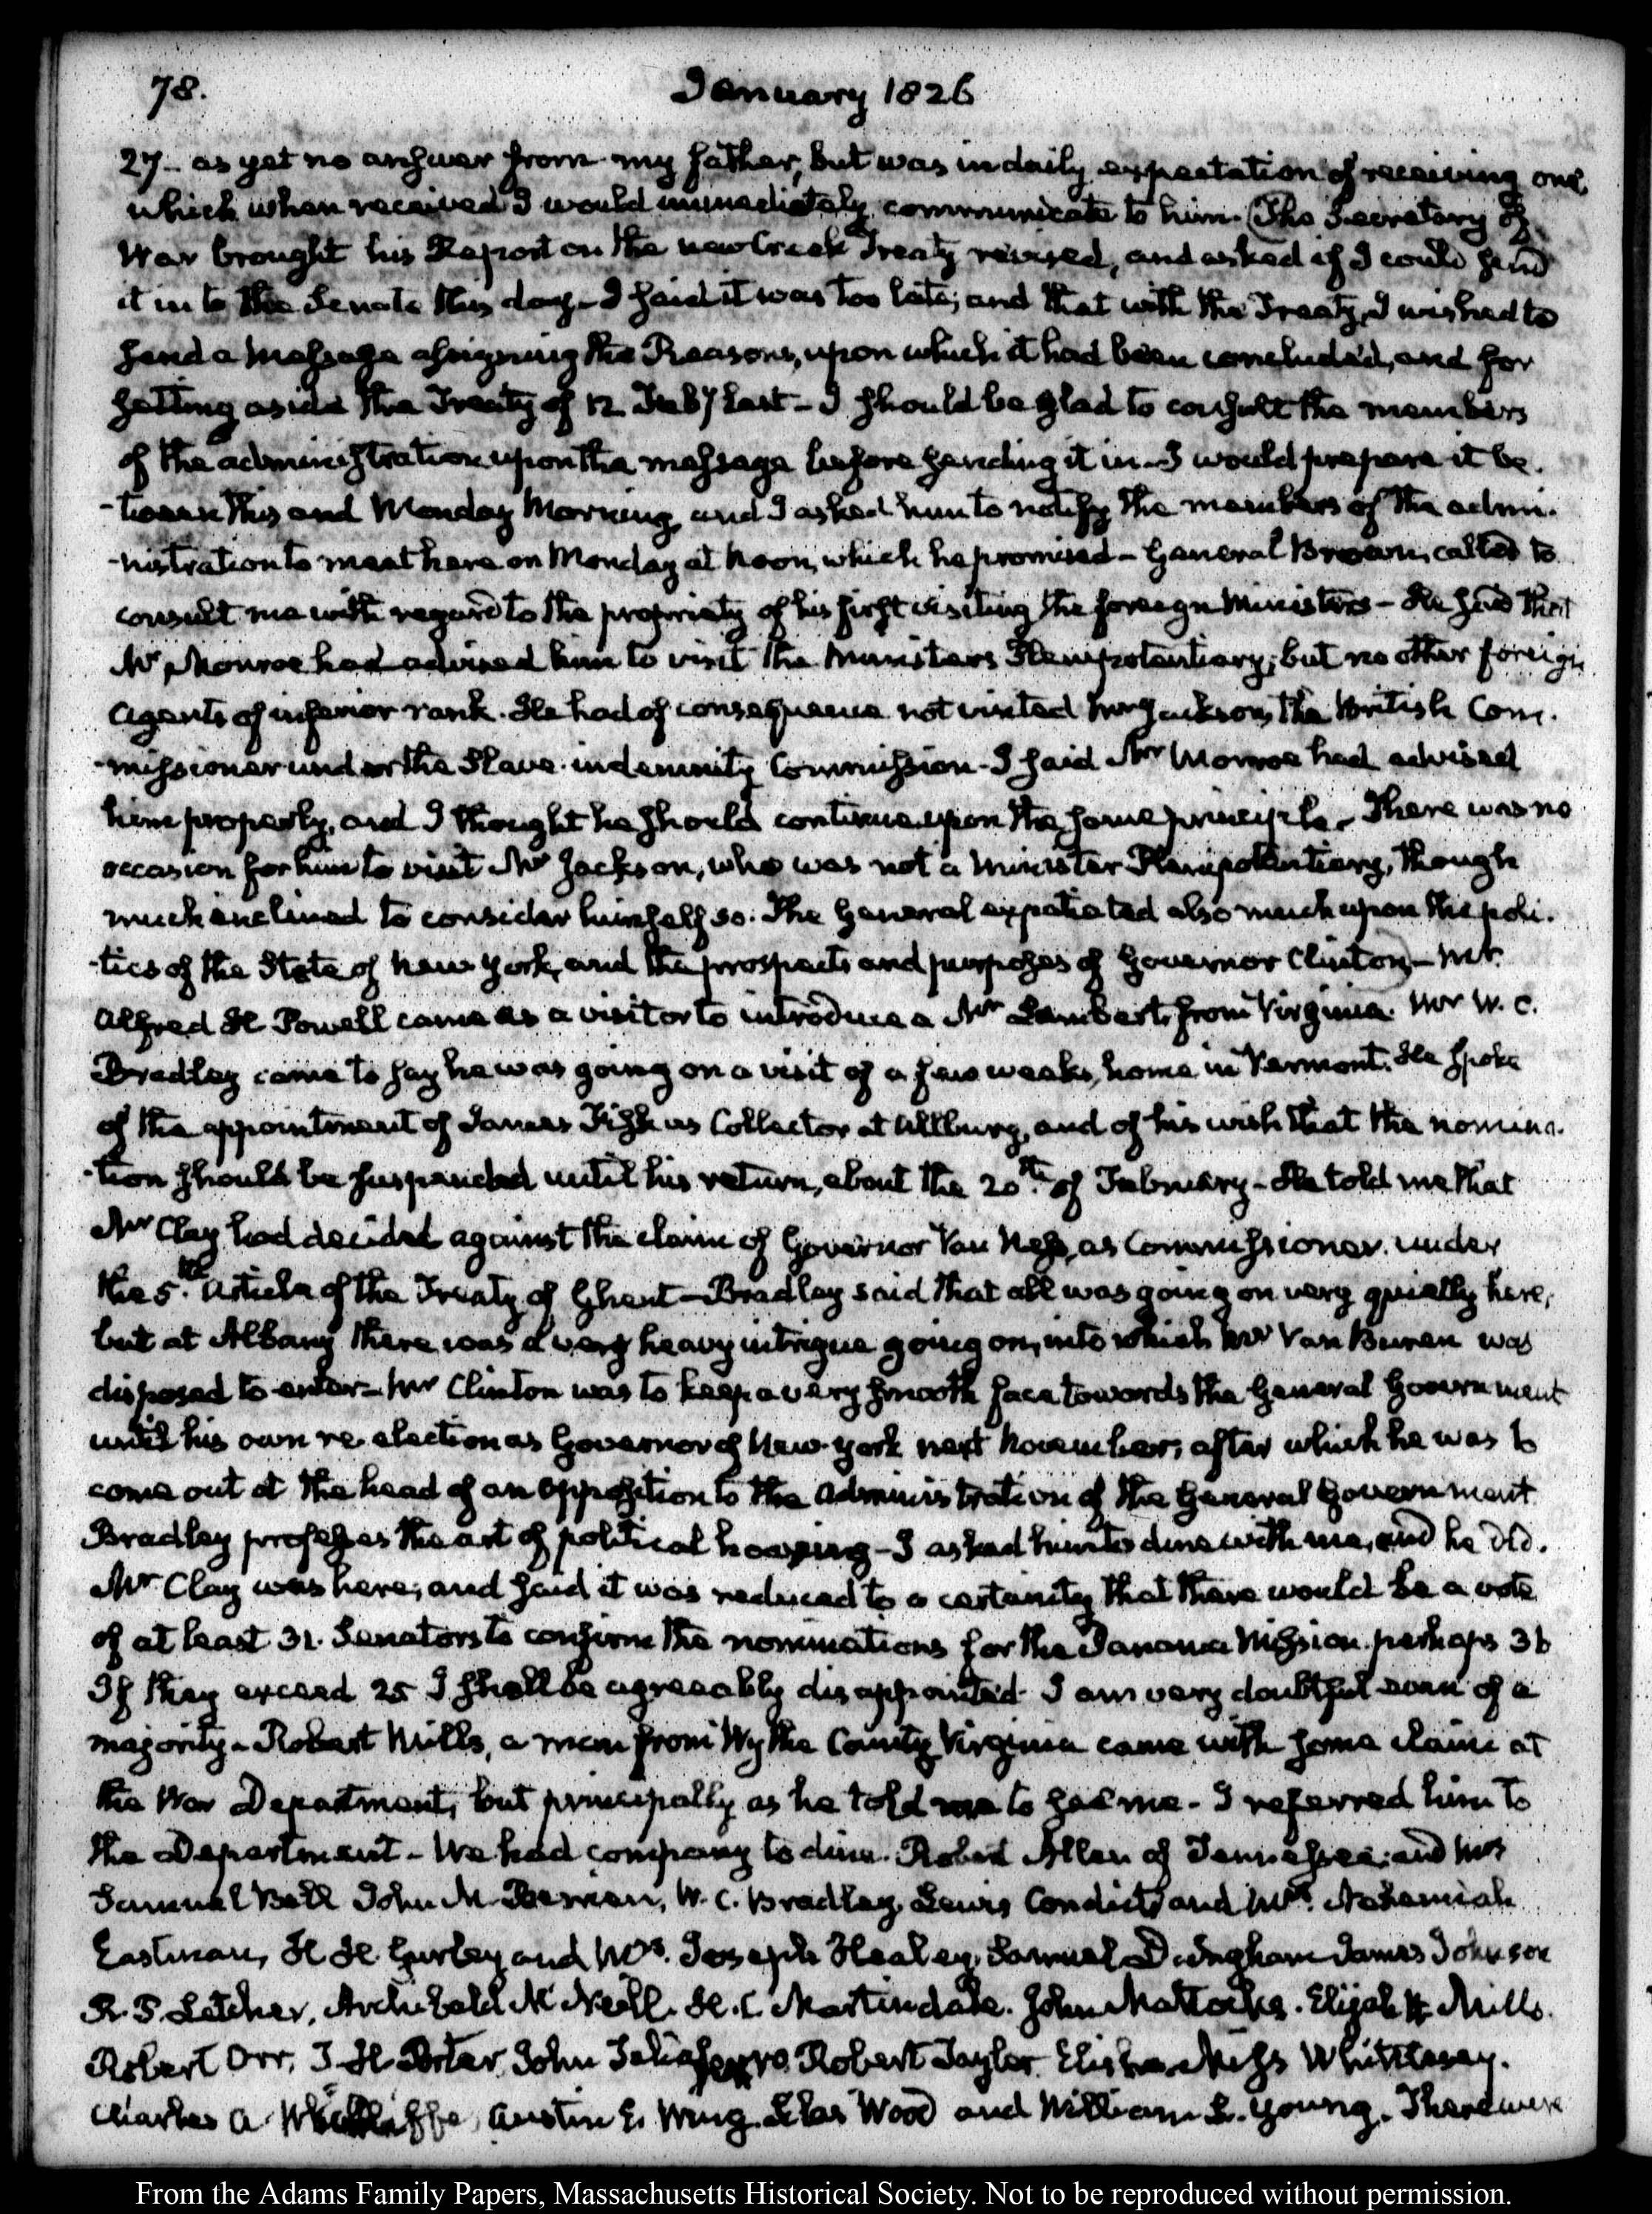 78.
January 1826
27_ as yet no answer from my father, but was in daily expectation of receiving one,
which when received I would immediately communicate to him. (The Secretary of
War brought his Report on the new Creek Treaty revised, and asked if I could send
it in to the Senate this day_ I said it was too late; and that with the Treaty, I wished to
send a Message assigning the Reasons, upon which it had been concluded, and for
setting aside the Treaty of 12 Feby last_ I should be glad to consult the members
of the administration upon the message before sending it in_ I would prepare it be-
-tween this and Monday Morning and I asked him to notify the members of the admi-
-nistration to meet here on Monday at Noon, which he promised_ General Brown, called to
consult me with regard to the propriety of his first visiting the foreign Ministers_ He said that
Mr Monroe had advised him to visit the Ministers Plenipotentiary; but no other foreign
Agents of inferior rank. He had of consequence not visited Mr Jackson, the British Com-
-missioner under the Slave-indemnity Commission_ I said Mr Monroe had advised
him properly, and I thought he should continue upon the same principle_ There was no
occasion for him to visit Mr Jackson, who was not a Minister Plenipotentiary, though
much inclined to consider himself so. The General expatiated also much upon the poli-
-tics of the State of New York, and the prospects and purposes of Governor Clinton)_ Mr.
Alfred H Powell came as a visitor to introduce a Mr Lambert, from Virginia. Mr W. C.
Bradley came to say he was going on a visit of a few weeks, home in Vermont. He spoke
of the appointment of James Fisk as Collector at Allburg, and of his wish that the nomina-
-tion should be suspended until his return, about the 20th. of February_ He told me that
Mr Clay had decided against the claim of Governor Van Ness, as Commissioner under
the 5th. Article of the Treaty of Ghent_ Bradley said that all was going on very quietly here,
but at Albany there was a very heavy intrigue going on, into which Mr Van Buren was
disposed to enter_ Mr Clinton was to keep a very smooth face towards the General Government
until his own re-election as Governor of New-York next November; after which he was to
come out at the head of an opposition to the Administration of the General Government
Bradley professes the art of political hoaxing_ I asked him to dine with me, and he did.
Mr Clay was here, and said it was reduced to a certainty that there would be a vote
of at least 31. Senators to confirm the nominations for the Panama Mission perhaps 36
If they exceed 25 I shall be agreeably disappointed. I am very doubtful even of a
majority_ Robert Mills, a man from Wythe County Virginia came with some claim at
the War Department, but principally as he told me to see me_ I referred him to
the Department_ We had company to dine. Robert Allen of Tennessee; and Mrs
Samuel Bell John M Berrien, W. C. Bradley, Lewis Condict and Mrs. Nehemiah
Eastman, H H Gurley and Mrs. Joseph Healey, Samuel D. Ingham James Johnson
R. P. Letcher, Archibald McNeill. H. C. Martindale. John Mattocks. Elijah H Mills.
Robert Orr, T. H. Porter, John Taliaferro Robert Taylor Elisha Whittlesey.
Charles A Wickliffe, Austin E. Wing Silas Wood and William S. Young. There were
From the Adams Family Papers, Massachusetts Historical Society. Not to be reproduced without permission.